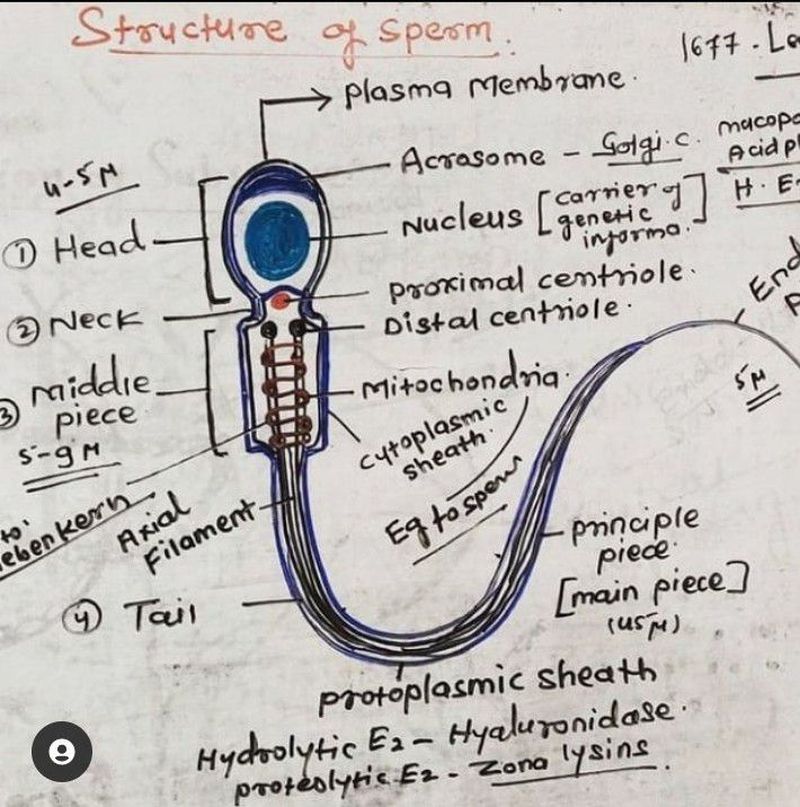 Structure of sperm.
1677.
plasma Membrane.
Acrasome - Golgi.C.
H.
4-5 M
① Head
Nucleus [carrier of
genetic
informa.]
proximal centriole.
② Neck
Distal centriole.
③ middle
piece
5-9 M
Mitochondria.
cytoplasmic
sheath.
5M
Axial
Filament
principle
piece.
[main piece]
(45M)
④ Tail
protoplasmic sheath
Hydrolytic Ez - Hyaluronidase.
proteolytic.Ez - Zona lysins